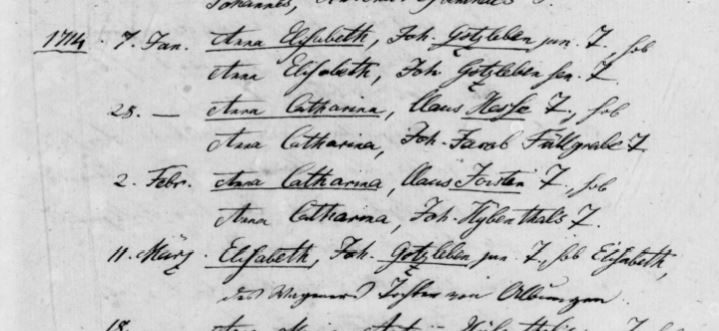 Johannes,
1714. 7. Jan. Anna Elisabeth, Joh. Gotzleben jun. T., hob
Anna Elisabeth, Joh. Gotzleben sen. T.
28. — Anna Catharina, Claus Hesse T., hob
Anna Catharina, Joh. Jacob Fallgrabe T
2. Febr. Anna Catharina, Claus Forsten T., hob
Anna Catharina, Joh. Hybenthal's T.
11. März. Elisabeth, Joh. Gotzleben jun. T., hob Elisabeth,
des Wagners Tochter von Albungen.
18. Anna